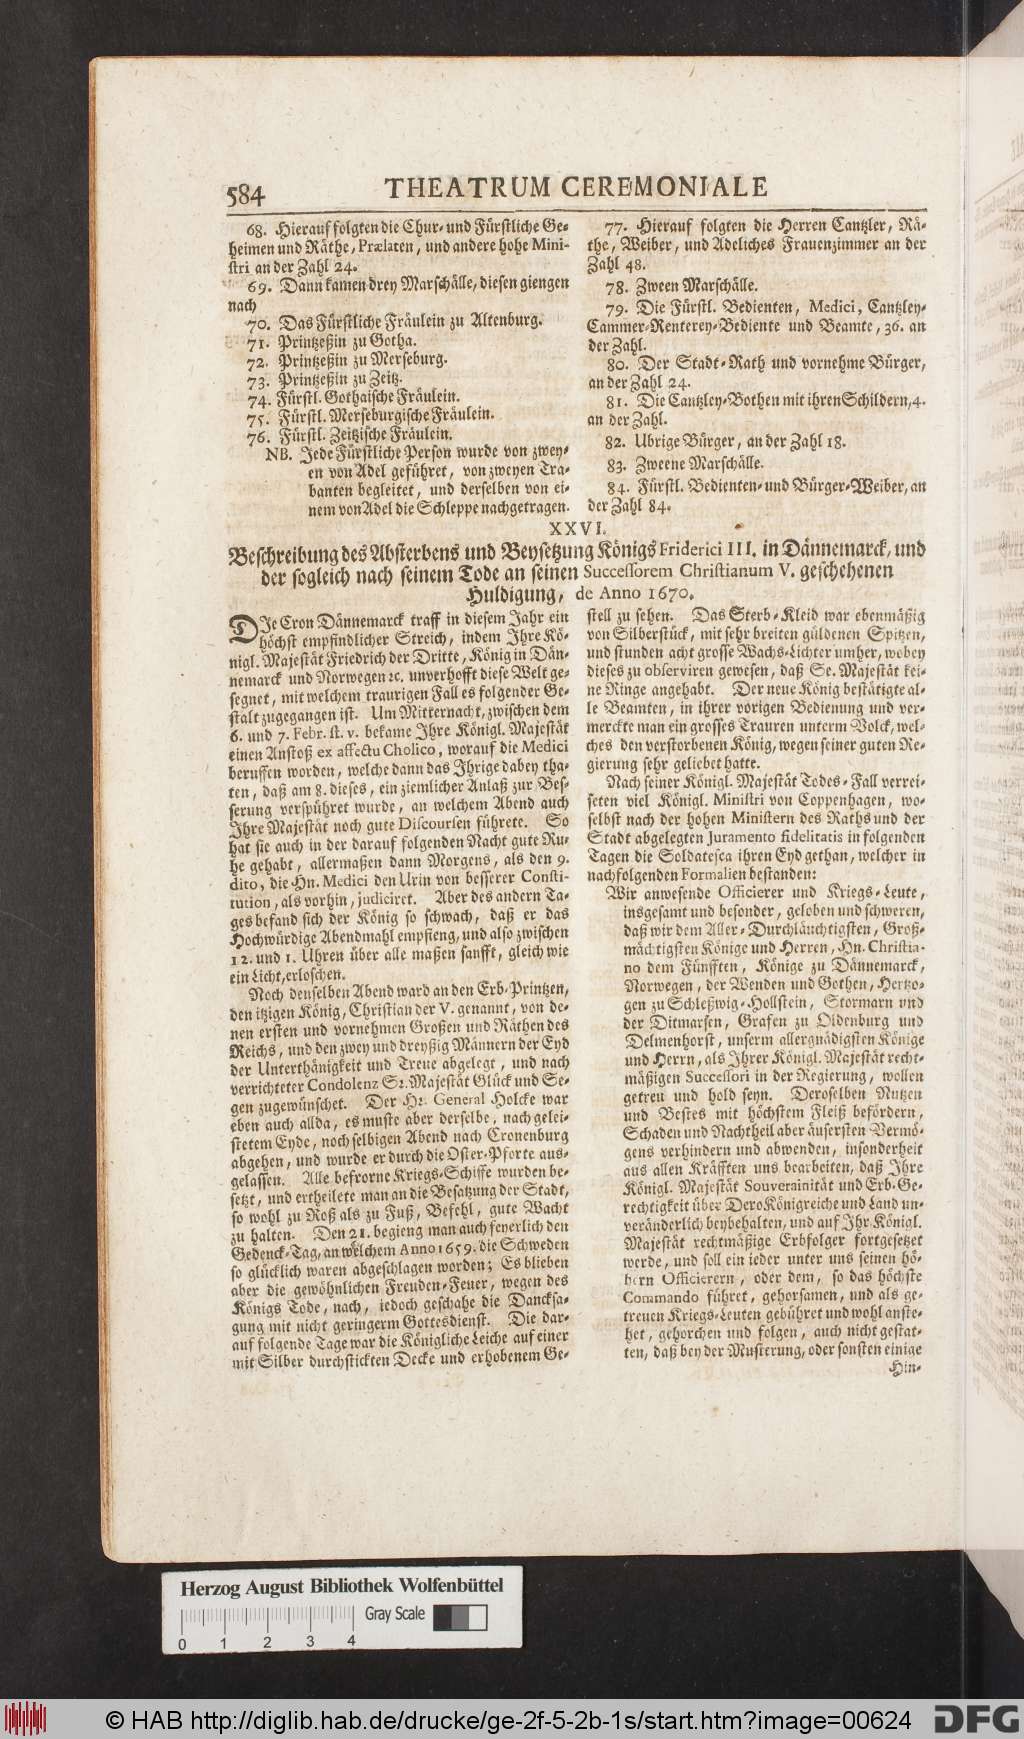 584
THEATRUM CEREMONIALE
68. Hierauf folgten die Chur- und Fürstliche Ge-
heimen und Räthe, Prælaten, und andere hohe Mini-
stri an der Zahl 24.
69. Dann kamen drey Marschälle, diesen giengen
nach
70. Das Fürstliche Fräulein zu Altenburg.
71. Printzeßin zu Gotha.
72. Printzeßin zu Merseburg.
73. Printzeßin zu Zeitz.
74. Fürstl. Gothaische Fräulein.
75. Fürstl. Merseburgische Fräulein.
76. Fürstl. Zeitzische Fräulein.
NB. Jede Fürstliche Person wurde von zwey-
en von Adel geführet, von zweyen Tra-
banten begleitet, und derselben von ei-
nem von Adel die Schleppe nachgetragen.
77. Hierauf folgten die Herren Cantzler, Rä-
the, Weiber, und Adeliches Frauenzimmer an der
Zahl 48.
78. Zween Marschälle.
79. Die Fürstl. Bedienten, Medici, Cantzley-
Cammer-Renterey-Bediente und Beamte, 36. an
der Zahl.
80. Der Stadt-Rath und vornehme Bürger,
an der Zahl 24.
81. Die Cantzley-Bothen mit ihren Schildern, 4.
an der Zahl.
82. Ubrige Bürger, an der Zahl 18.
83. Zweene Marschälle.
84. Fürstl. Bedienten- und Bürger-Weiber, an
der Zahl 84.
XXVI.
Beschreibung des Absterbens und Beysetzung Königs Friderici III. in Dännemarck, und
der sogleich nach seinem Tode an seinen Successorem Christianum V. geschehenen
Huldigung, de Anno 1670.
DIe Cron Dännemarck traff in diesem Jahr ein
höchst empfindlicher Streich, indem Ihre Kö-
nigl. Majestät Friedrich der Dritte, König in Dän-
nemarck und Norwegen ꝛc. unverhofft diese Welt ge-
segnet, mit welchem traurigen Fall es folgender Ge-
stalt zugegangen ist. Um Mitternacht, zwischen dem
6. und 7. Febr. st. v. bekame Ihre Königl. Majestät
einen Anstoß ex affectu Cholico, worauf die Medici
beruffen worden, welche dann das Ihrige dabey tha-
ten, daß am 8. dieses, ein ziemlicher Anlaß zur Bes-
serung verspühret wurde, an welchem Abend auch
Ihre Majestät noch gute Discoursen führete. So
hat sie auch in der darauf folgenden Nacht gute Ru-
he gehabt, allermaßen dann Morgens, als den 9.
dito, die Hn. Medici den Urin von besserer Consti-
tution, als vorhin, judiciret. Aber des andern Ta-
ges befand sich der König so schwach, daß er das
Hochwürdige Abendmahl empfieng, und also zwischen
12. und 1. Uhren über alle maßen sanfft, gleich wie
ein Licht, erloschen.
Noch denselben Abend ward an den Erb-Printzen,
den itzigen König, Christian der V. genannt, von de-
nen ersten und vornehmen Großen und Räthen des
Reichs, und den zwey und dreyßig Männern der Eyd
der Unterthänigkeit und Treue abgelegt, und nach
verrichteter Condolenz Sr. Majestät Glück und Se-
gen zugewünschet. Der Hr. General Holcke war
eben auch allda, es muste aber derselbe, nach gelei-
stetem Eyde, noch selbigen Abend nach Cronenburg
abgehen, und wurde er durch die Oster-Pforte aus-
gelassen. Alle befrorne Kriegs-Schiffe wurden be-
setzt, und ertheilete man an die Besatzung der Stadt,
so wohl zu Roß als zu Fuß, Befehl, gute Wacht
zu halten. Den 21. begieng man auch feyerlich den
Gedenck-Tag, an welchem Anno 1659. die Schweden
so glücklich waren abgeschlagen worden; Es blieben
aber die gewöhnlichen Freuden-Feuer, wegen des
Königs Tode, nach, iedoch geschahe die Dancksa-
gung mit nicht geringerm Gottesdienst. Die dar-
auf folgende Tage war die Königliche Leiche auf einer
mit Silber durchstickten Decke und erhobenem Ge-
stell zu sehen. Das Sterb-Kleid war ebenmäßig
von Silberstück, mit sehr breiten güldenen Spitzen,
und stunden acht grosse Wachs-Lichter umher, wobey
dieses zu observiren gewesen, daß Se. Majestät kei-
ne Ringe angehabt. Der neue König bestätigte al-
le Beamten, in ihrer vorigen Bedienung und ver-
merckte man ein grosses Trauren unterm Volck, wel-
ches den verstorbenen König, wegen seiner guten Re-
gierung sehr geliebet hatte.
Nach seiner Königl. Majestät Todes-Fall verrei-
seten viel Königl. Ministri von Coppenhagen, wo-
selbst nach der hohen Ministern des Raths und der
Stadt abgelegten Juramento fidelitatis in folgenden
Tagen die Soldatesca ihren Eyd gethan, welcher in
nachfolgenden Formalien bestanden:
Wir anwesende Officierer und Kriegs-Leute,
insgesamt und besonder, geloben und schweren,
daß wir dem Aller-Durchläuchtigsten, Groß-
mächtigsten Könige und Herren, Hn. Christia-
no dem Fünfften, Könige zu Dännemarck,
Norwegen, der Wenden und Gothen, Hertzo-
gen zu Schleßwig-Hollstein, Stormarn und
der Ditmarsen, Grafen zu Oldenburg und
Delmenhorst, unserm allergnädigsten Könige
und Herrn, als Ihrer Königl. Majestät recht-
mäßigen Successori in der Regierung, wollen
getreu und hold seyn. Deroselben Nutzen
und Bestes mit höchstem Fleiß befördern,
Schaden und Nachtheil aber äusersten Vermö-
gens verhindern und abwenden, insonderheit
aus allen Kräfften uns bearbeiten, daß Ihre
Königl. Majestät Souverainität und Erb-Ge-
rechtigkeit über Dero Königreiche und Land un-
veränderlich beybehalten, und auf Ihr Königl.
Majestät rechtmäßige Erbfolger fortgesetzet
werde, und soll ein ieder unter uns seinen hö-
hern Officierern, oder dem, so das höchste
Commando führet, gehorsamen, und als ge-
treuen Kriegs-Leuten gebühret und wohl anste-
het, gehorchen und folgen, auch nicht gestat-
ten, daß bey der Musterung, oder sonsten einige
Hin-
Herzog August Bibliothek Wolfenbüttel
Gray Scale
0 1 2 3 4
© HAB http://diglib.hab.de/drucke/ge-2f-5-2b-1s/start.htm?image=00624
DFG